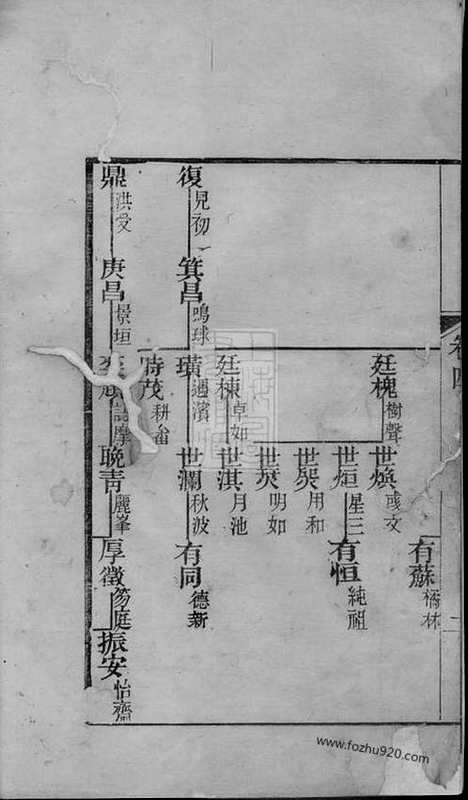 卷四
有蘇 橘林
廷槐 樹聲 世煥 彧文
世烜 星三 有恒 純祖
世㷂 用和
世焸 明如
廷棟 卓如 世淇 月池
復 見初 箕昌 鳴球 璜 遇濱 世瀾 秋波 有同 德新
時茂 耕畬
鼎 洪受 庚昌 景垣 詁摩 晚青 麗峯 厚徵 笏庭 振安 怡齋
www.fozhu920.com